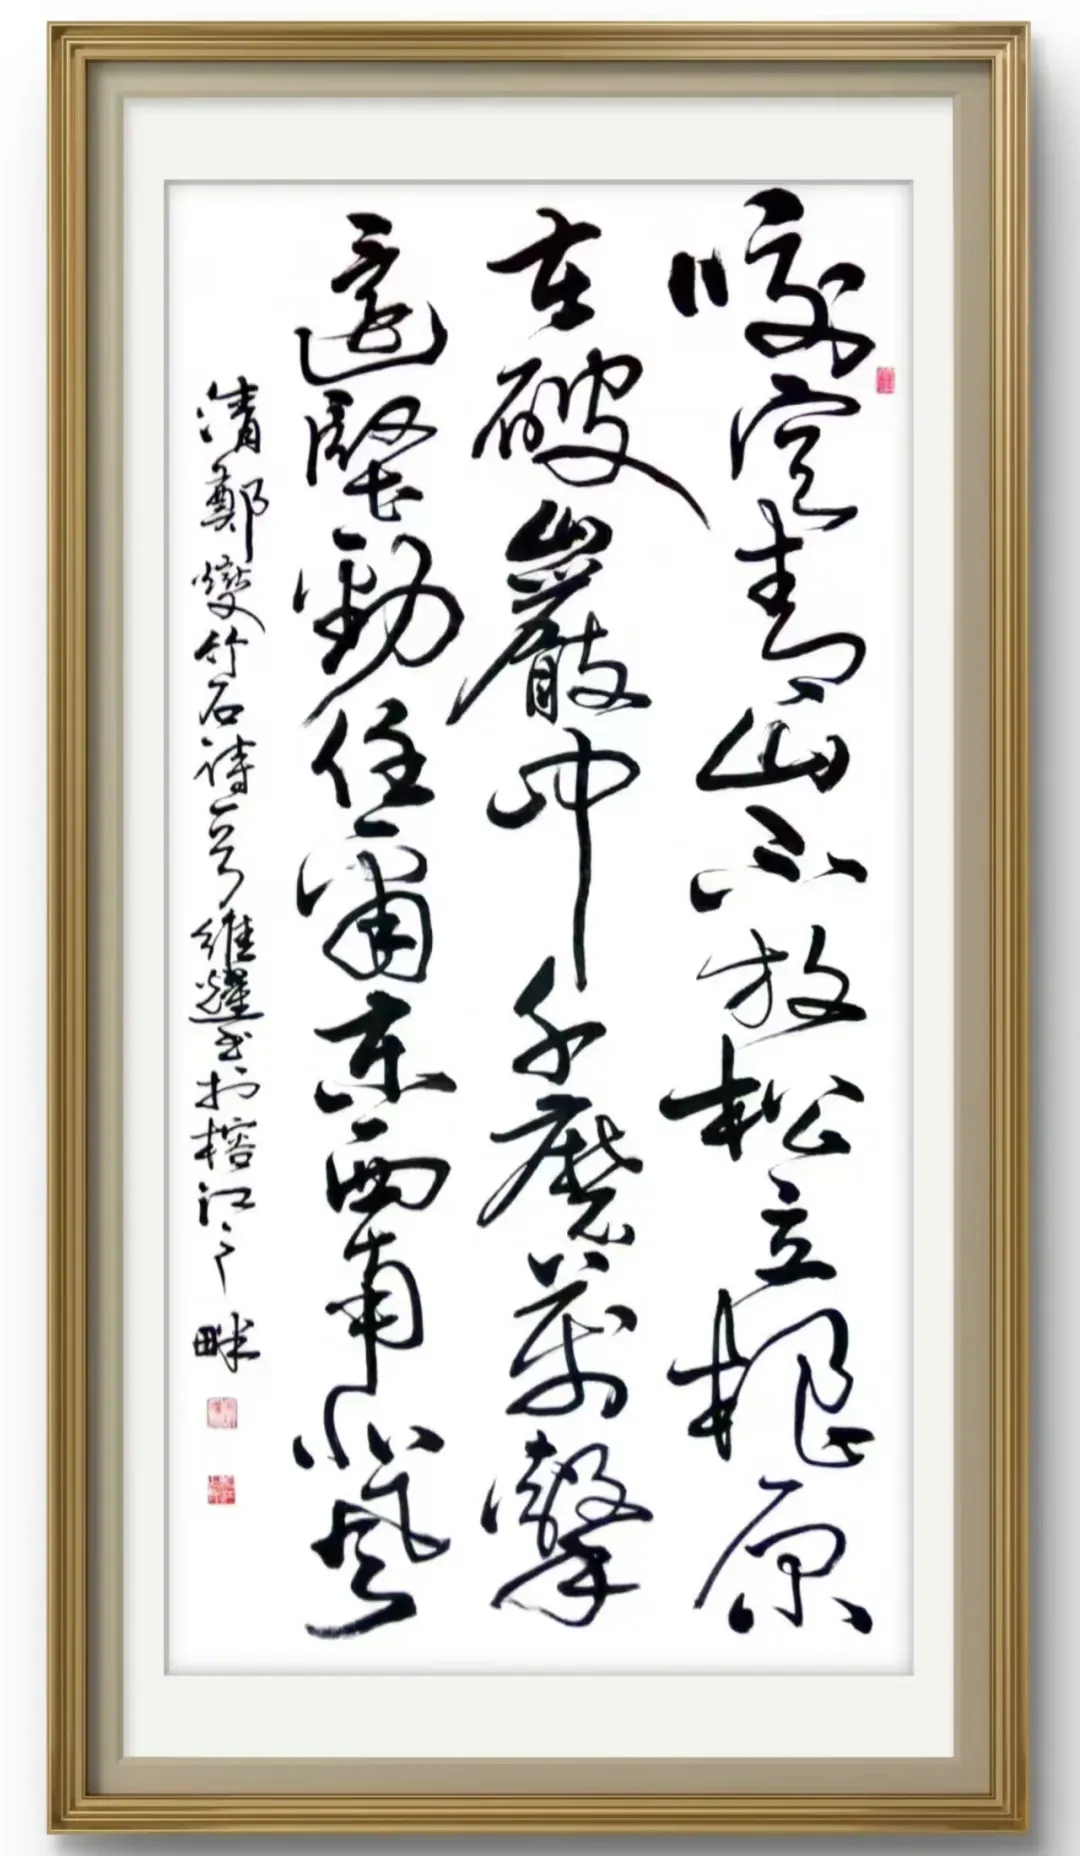 咬定青山不放松立根原
在破巖中千磨萬擊
還堅勁任爾東西南北風
清鄭燮竹石詩一首維耀書於榕江之畔